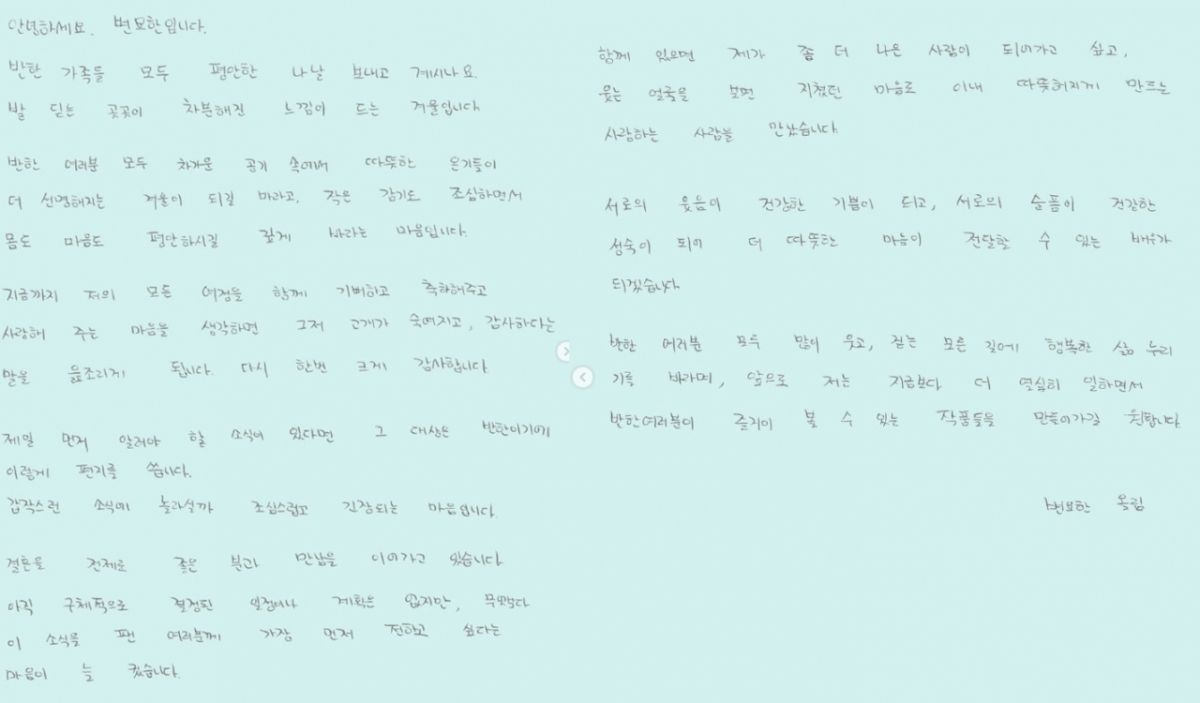 안녕하세요. 변요한입니다.
반한 가족들 모두 평안한 나날 보내고 계시나요.
발 딛는 곳곳이 차분해진 느낌이 드는 겨울입니다.
반한 여러분 모두 차가운 공기 속에서 따뜻한 온기들이
더 선명해지는 겨울이 되길 바라고, 작은 감기도 조심하면서
몸도 마음도 평안하시길 깊게 바라는 마음입니다.
지금까지 저의 모든 여정을 함께 기뻐하고 축하해주고
사랑해 주는 마음들을 생각하면 그저 고개가 숙여지고, 감사하다는
말을 읊조리게 됩니다. 다시 한번 크게 감사합니다.
제일 먼저 알려야 할 소식이 있다면 그 대상은 반한이기에
이렇게 편지를 씁니다.
갑작스런 소식에 놀라실까 조심스럽고 긴장되는 마음입니다.
결혼을 전제로 좋은 분과 만남을 이어가고 있습니다.
아직 구체적으로 결정된 일정이나 계획은 없지만, 무엇보다
이 소식을 팬 여러분께 가장 먼저 전하고 싶다는
마음이 늘 컸습니다.
함께 있으면 제가 좀 더 나은 사람이 되어가고 싶고,
웃는 얼굴을 보면 지쳤던 마음도 이내 따뜻해지게 만드는
사랑하는 사람을 만났습니다.
서로의 웃음이 건강한 기쁨이 되고, 서로의 슬픔이 건강한
성숙이 되어 더 따뜻한 마음이 전달할 수 있는 배우가
되겠습니다.
반한 여러분 모두 많이 웃고, 걷는 모든 길에 행복한 삶 누리
기를 바라며, 앞으로 저는 지금보다 더 열심히 일하면서
반한여러분이 즐거이 볼 수 있는 작품들을 만들어가길 원합니다.
변요한 올림